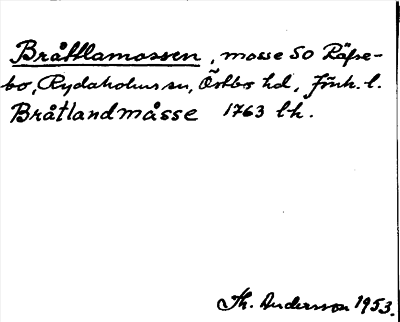 Bråttlamossen, mosse SO Räfse-
bo, Rydaholms sn, Östbo hd, Jönk. l.
Bråtlandmåsse 1763 lk.
Th. Andersson 1953.